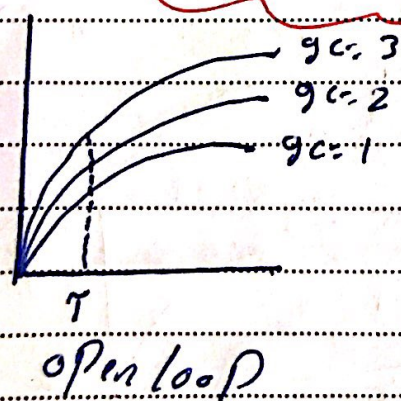 gc=3
gc=2
gc=1
T
open loop